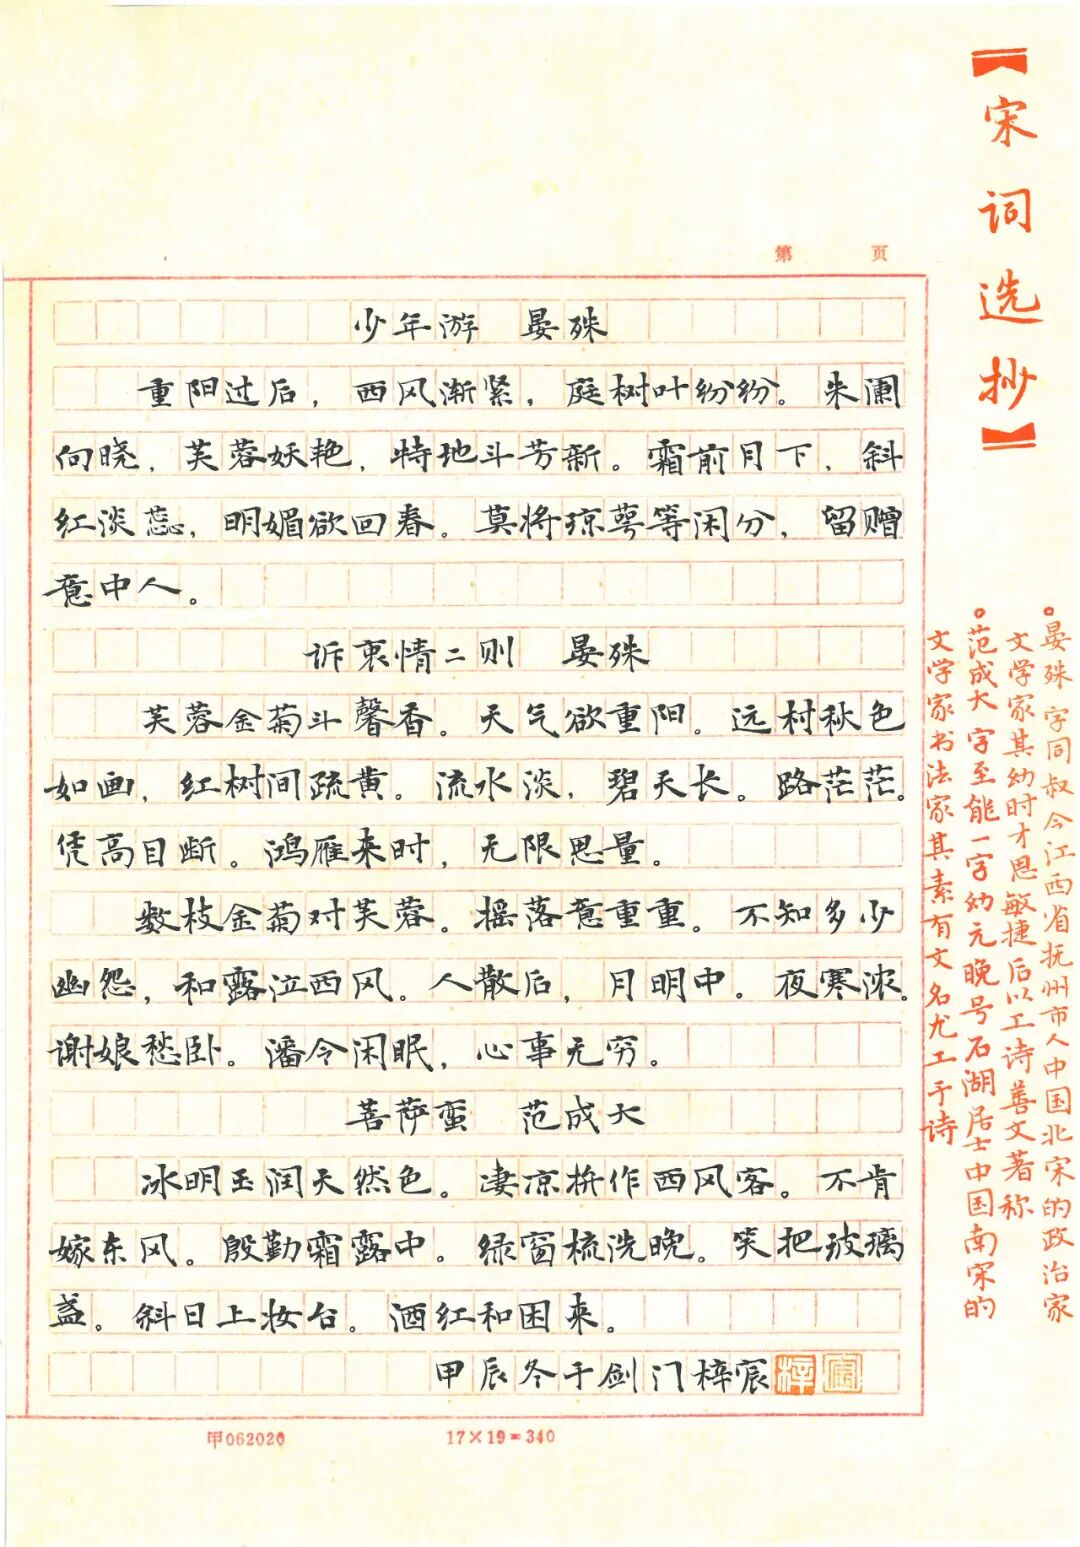 【宋词选抄】
第 页
少年游 晏殊
重阳过后，西风渐紧，庭树叶纷纷。朱阑
向晓，芙蓉妖艳，特地斗芳新。霜前月下，斜
红淡蕊，明媚欲回春。莫将琼萼等闲分，留赠
意中人。
诉衷情二则 晏殊
芙蓉金菊斗馨香。天气欲重阳。远村秋色
如画，红树间疏黄。流水淡，碧天长。路茫茫。
凭高目断。鸿雁来时，无限思量。
数枝金菊对芙蓉。摇落意重重。不知多少
幽怨，和露泣西风。人散后，月明中。夜寒浓。
谢娘愁卧。潘令闲眠，心事无穷。
菩萨蛮 范成大
冰明玉润天然色。凄凉拚作西风客。不肯
嫁东风。殷勤霜露中。绿窗梳洗晚。笑把玻璃
盏。斜日上妆台。酒红和困来。
甲辰冬于剑门梓宸
梓
甲062020
17×19=340
晏殊字同叔今江西省抚州市人中国北宋的政治家
文学家其幼时才思敏捷后以工诗善文著称
范成大字至能一字幼元晚号石湖居士中国南宋的
文学家书法家其素有文名尤工于诗